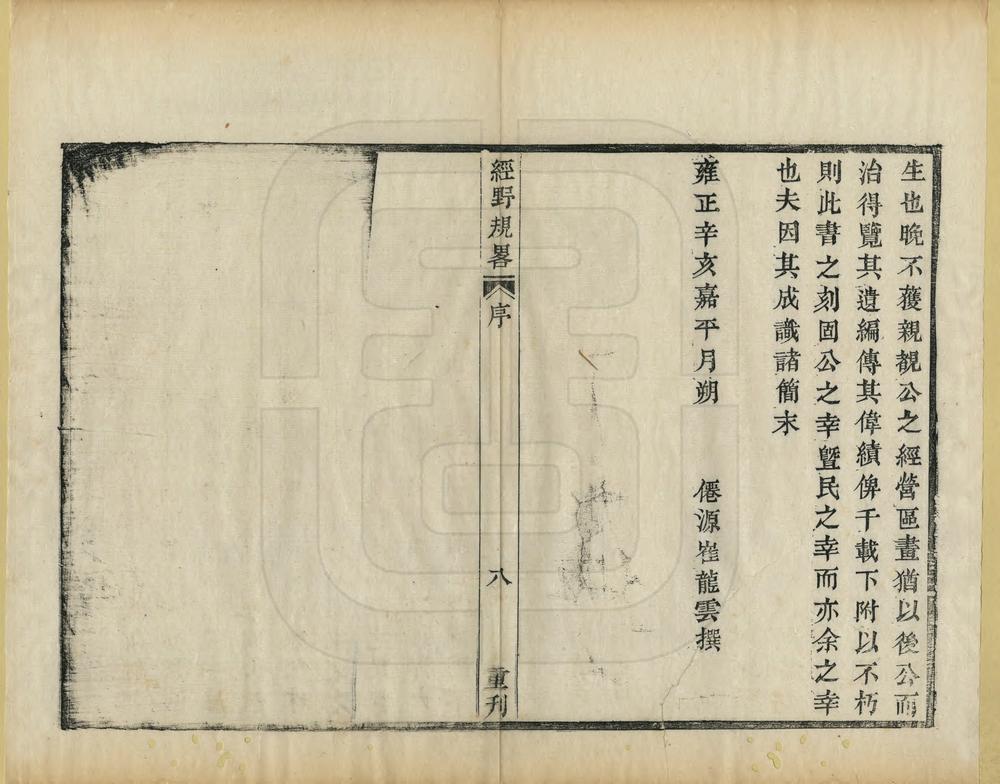 生也晚不獲親覩公之經營區畫猶以後公而
治得覽其遺編傳其偉績俾千載下附以不朽
則此書之刻固公之幸曁民之幸而亦余之幸
也夫因其成識諸簡末
雍正辛亥嘉平月朔 僊源崔龍雲撰
經野規畧 序 八 重刋